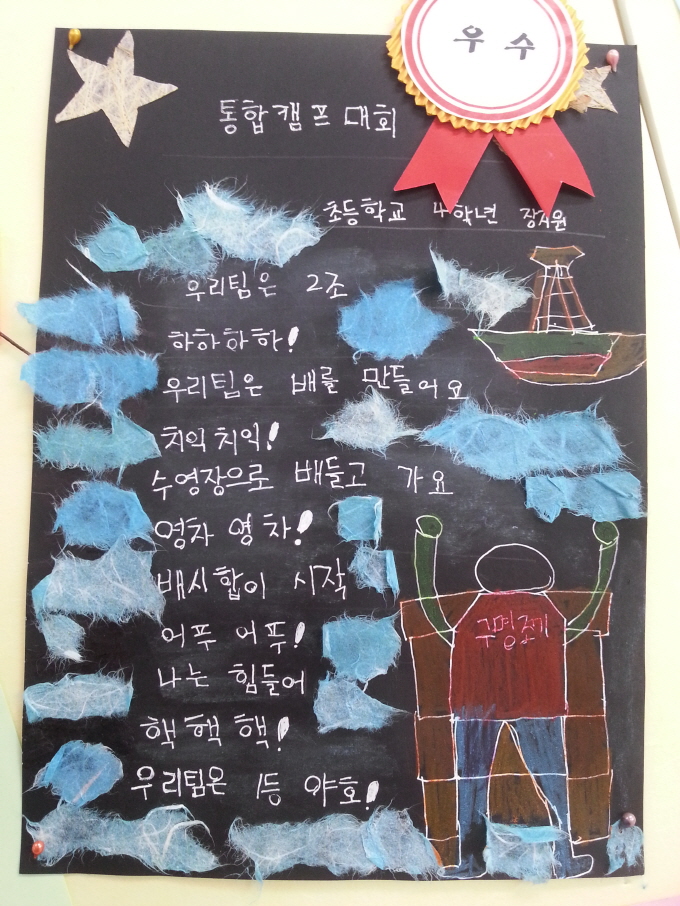 우수
통합캠프대회
초등학교 4학년 장서원
우리팀은 2조
하하하하!
우리팀은 배를 만들어요
치익치익!
수영장으로 배들고 가요
영차 영차!
배시합이 시작
어푸 어푸!
나는 힘들어
핵핵핵!
우리팀은 1등 야호!
구명조끼